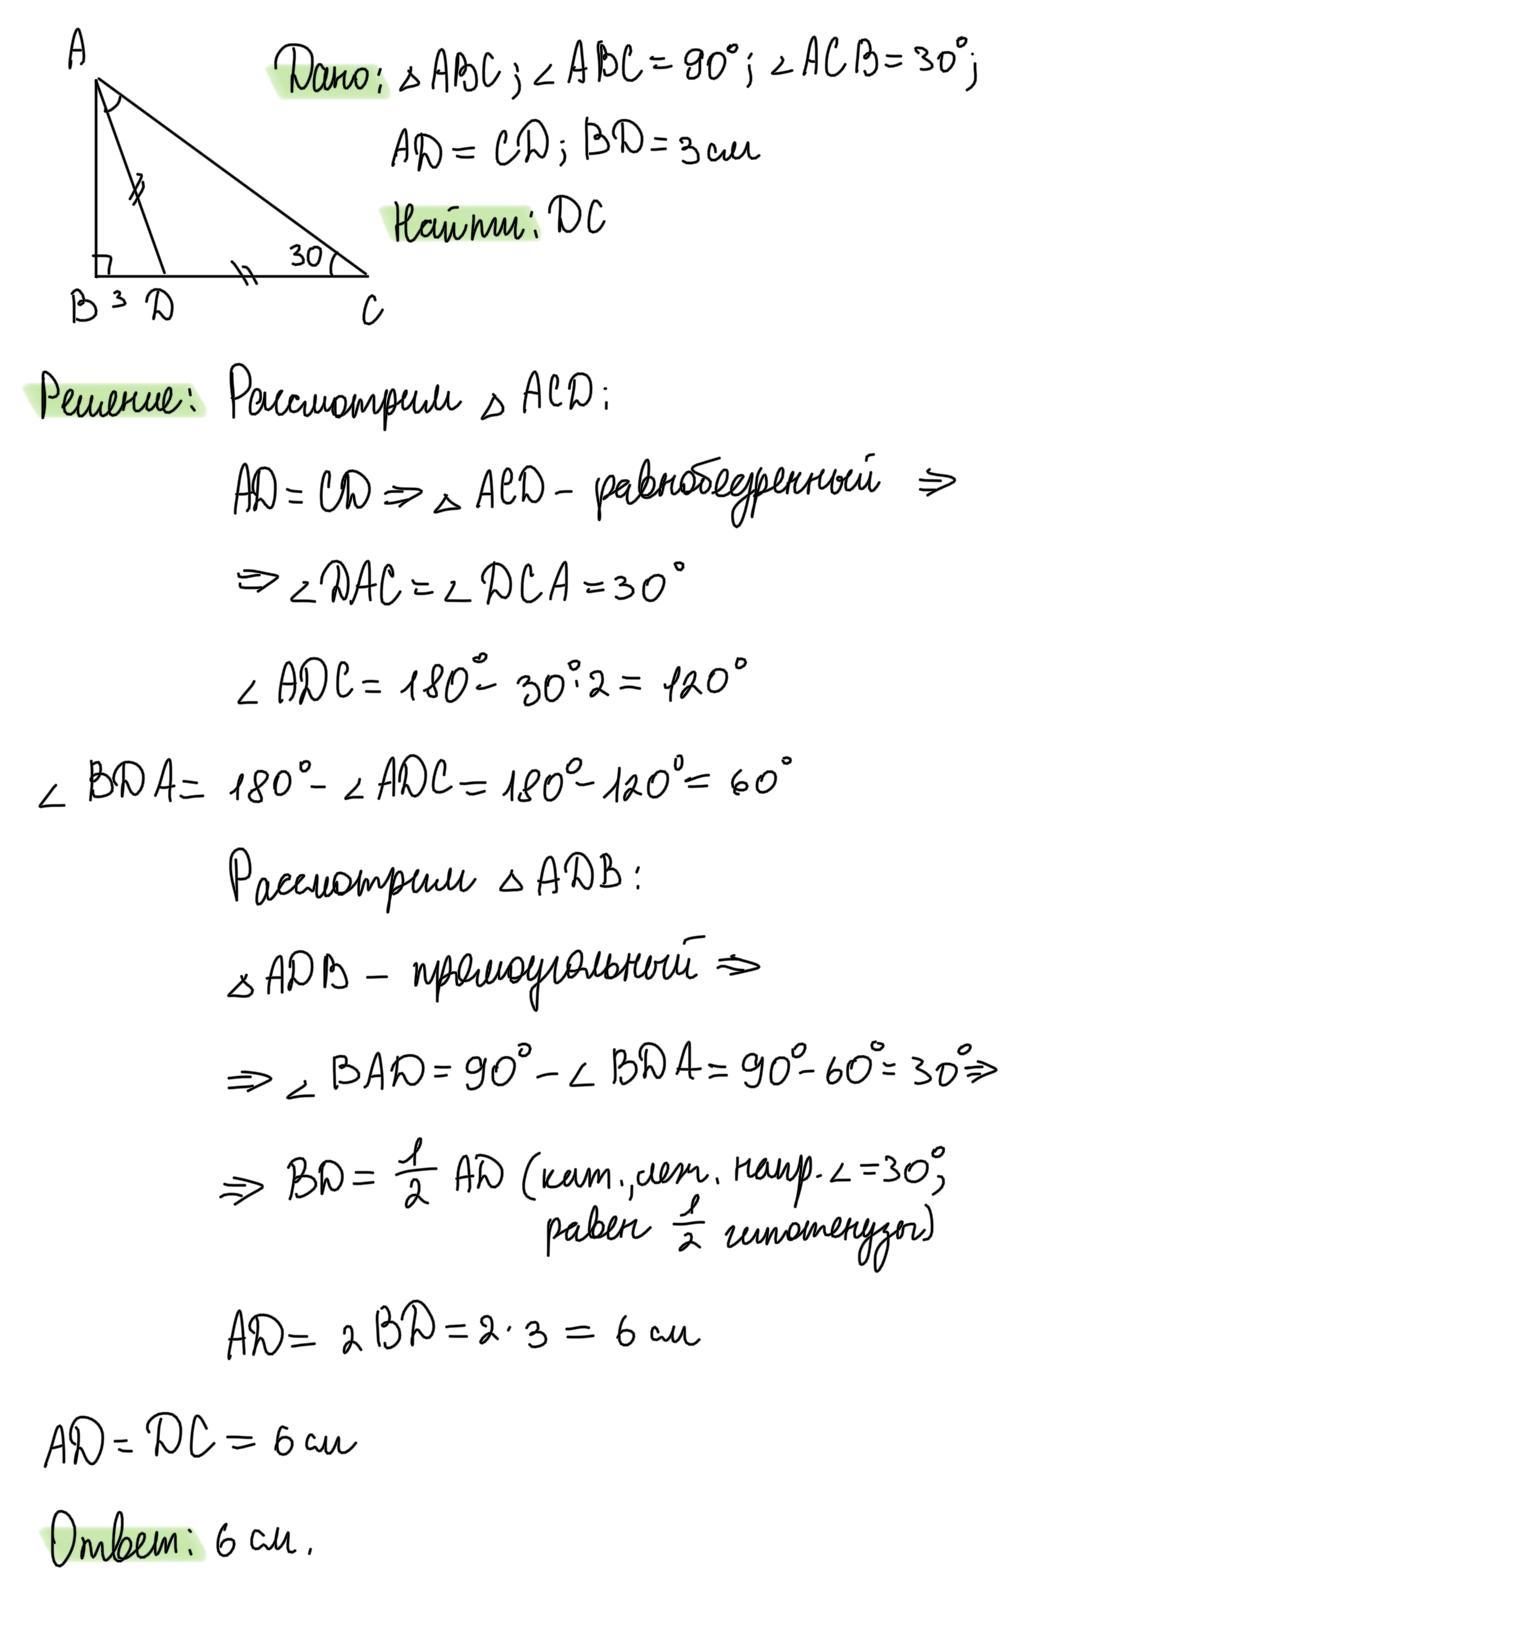 A
Дано: △ABC; ∠ABC = 90°; ∠ACB = 30°;
AD = CD; BD = 3 см
Найти: DC
30
B 3 D C
Решение: Рассмотрим △ACD:
AD = CD ⇒ △ACD – равнобедренный ⇒
⇒ ∠DAC = ∠DCA = 30°
∠ADC = 180° - 30°·2 = 120°
∠BDA = 180° - ∠ADC = 180° - 120° = 60°
Рассмотрим △ADB:
△ADB – прямоугольный ⇒
⇒ ∠BAD = 90° - ∠BDA = 90° - 60° = 30° ⇒
⇒ BD = 1/2 AD (кат., леж. напр. ∠ = 30°,
равен 1/2 гипотенузы)
AD = 2BD = 2·3 = 6 см
AD = DC = 6 см
Ответ: 6 см.